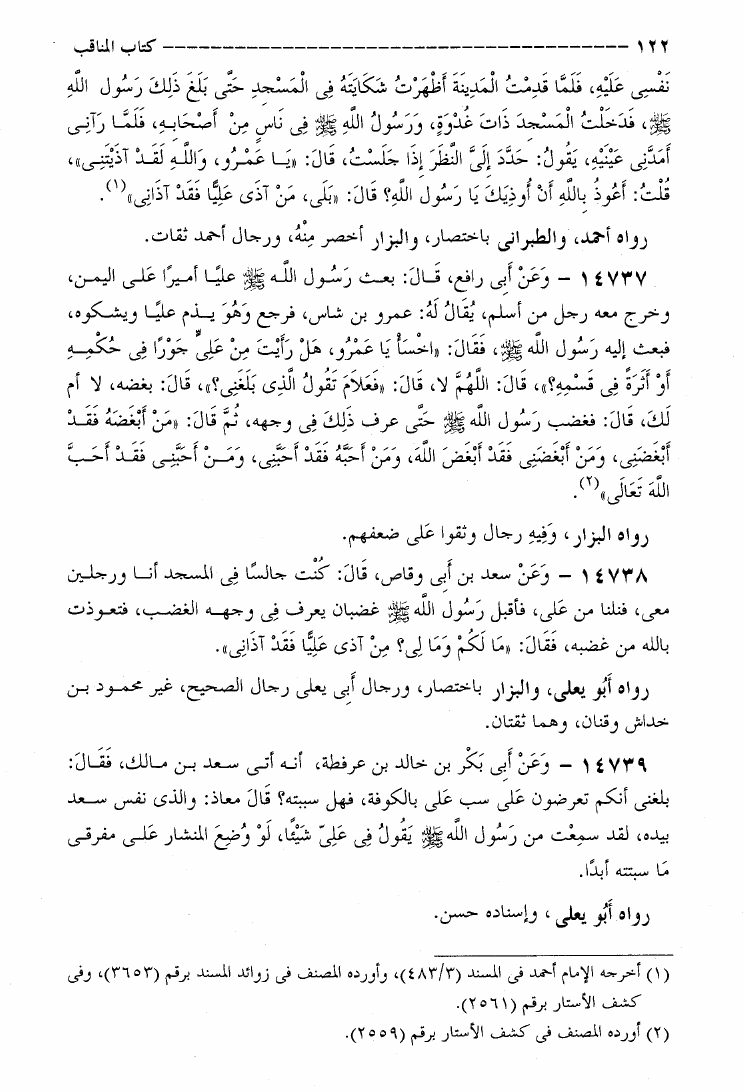 ١٢٢ ---------------------------------------- كتاب المناقب
نَفْسِى عَلَيْهِ، فَلَمَّا قَدِمْتُ الْمَدِينَةَ أَظْهَرْتُ شَكَايَتَهُ فِى الْمَسْجِدِ حَتَّى بَلَغَ ذَلِكَ رَسُول اللهِ
ﷺ، فَدَخَلْتُ الْمَسْجِدَ ذَاتَ غُدْوَةٍ، وَرَسُولُ اللَّهِ ﷺ فِى نَاسٍ مِنْ أَصْحَابِهِ، فَلَمَّا رَآنِى
أَمَدَّنِى عَيْنَيْهِ، يَقُولُ: حَدَّدَ إِلَىَّ النَّظَرَ إِذَا جَلَسْتُ، قَالَ: «يَا عَمْرُو، وَاللَّهِ لَقَدْ آذَيْتَنِى»،
قُلْتُ: أَعُوذُ بِاللَّهِ أَنْ أُوذِيَكَ يَا رَسُولَ اللَّهِ؟ قَالَ: «بَلَى، مَنْ آذَى عَلِيًّا فَقَدْ آذَانِى»(١).
رواه أحمد، والطبرانى باختصار، والبزار أخصر مِنْهُ، ورجال أحمد ثقات.
١٤٧٣٧ – وَعَنْ أَبِى رافع، قَالَ: بعث رَسُول اللَّه ﷺ عليًا أميرًا عَلى اليمن،
وخرج معه رجل من أسلم، يُقَالُ لَهُ: عمرو بن شاس، فرجع وَهُوَ يذم عليًا ويشكوه،
فبعث إليه رَسُول الله ﷺ، فَقَالَ: «اخْسَأْ يَا عَمْرُو، هَلْ رَأَيْتَ مِنْ عَلِىٍّ جَوْرًا فِى حُكْمِهِ
أَوْ أَثَرَةً فِى قَسْمِهِ؟»، قَالَ: اللَّهُمَّ لا، قَالَ: «فَعَلاَمَ تَقُولُ الَّذِى بَلَغَنِى؟»، قَالَ: بغضه، لا أم
لَكَ، قَالَ: فغضب رَسُول الله ﷺ حَتَّى عرف ذَلِكَ فِى وجهه، ثُمَّ قَالَ: «مَنْ أَبْغَضَهُ فَقَدْ
أَبْغَضَنِى، وَمَنْ أَبْغَضَنِى فَقَدْ أَبْغَضَ اللَّهَ، وَمَنْ أَحَبَّهُ فَقَدْ أَحَبَّنِى، وَمَنْ أَحَبَّنِى فَقَدْ أَحَبَّ
اللَّهَ تَعَالَى»(٢).
رواه البزار، وَفِيهِ رجال وثقوا عَلى ضعفهم.
١٤٧٣٨ – وَعَنْ سعد بن أَبِى وقاص، قَالَ: كُنْت جالسًا فِى المسجد أنا ورجلين
معى، فنلنا من عَلى، فأقبل رَسُول الله ﷺ غضبان يعرف فِى وجهه الغضب، فتعوذت
بالله من غضبه، فَقَالَ: «مَا لَكُمْ وَمَا لِى؟ مِنْ آذى عَلِيًّا فَقَدْ آذَانِى».
رواه أَبُو يعلى، والبزار باختصار، ورجال أَبِى يعلى رجال الصحيح، غير محمود بن
خداش وقنان، وهما ثقتان.
١٤٧٣٩ – وَعَنْ أَبِى بَكْر بن خالد بن عرفطة، أنه أتى سعد بن مالك، فَقَالَ:
بلغنى أنكم تعرضون عَلى سب عَلى بالكوفة، فهل سببته؟ قَالَ معاذ: والذى نفس سعد
بيده، لقد سمِعْت من رَسُول الله ﷺ يَقُولُ فِى عَلِىّ شَيْئًا، لَوْ وُضِعَ المنشار عَلى مفرقى
مَا سببته أبدًا.
رواه أَبُو يعلى، وإسناده حسن.
(١) أخرجه الإمام أحمد فى المسند (٤٨٣/٣)، وأورده المصنف فى زوائد المسند برقم (٣٦٥٣)، وفى
كشف الأستار برقم (٢٥٦١).
(٢) أورده المصنف فى كشف الأستار برقم (٢٥٥٩).